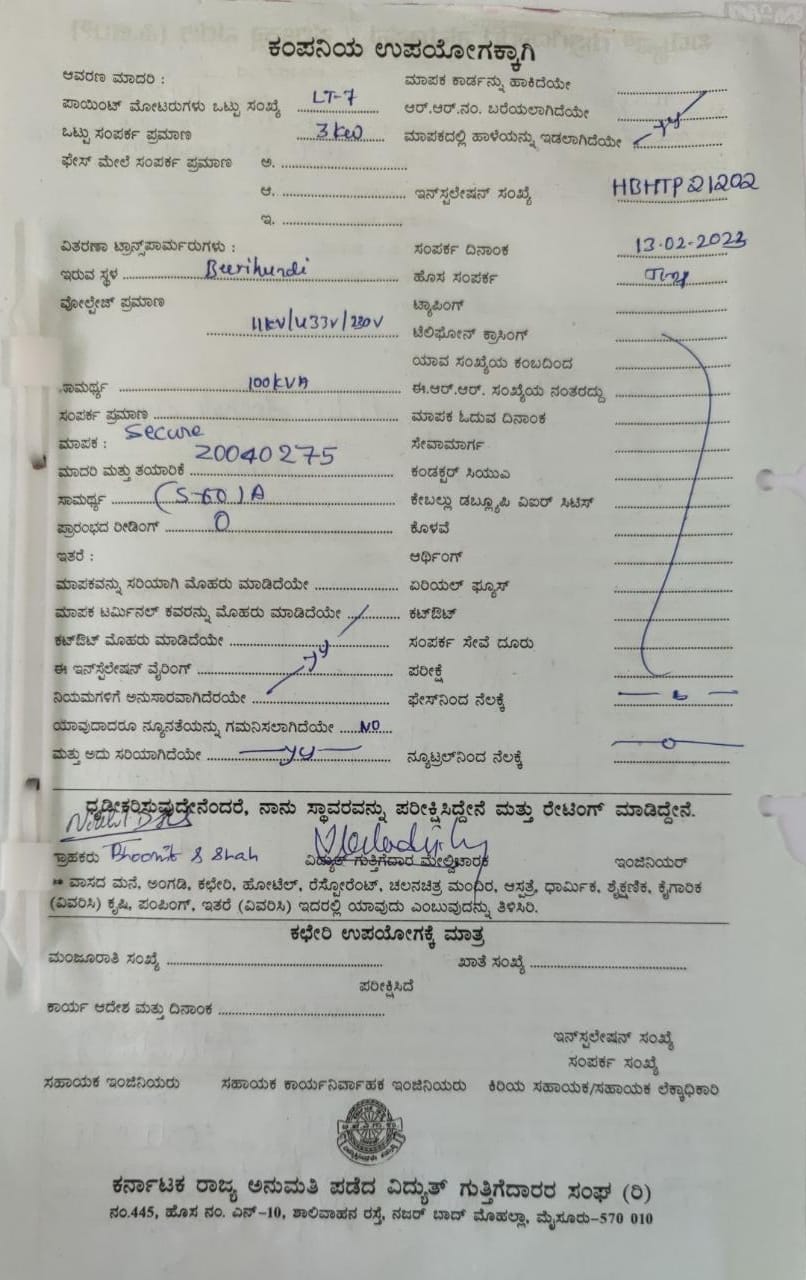 ಕಂಪನಿಯ ಉಪಯೋಗಕ್ಕಾಗಿ
ಆವರಣ ಮಾದರಿ : ಮಾಪಕ ಕಾರ್ಡನ್ನು ಹಾಕಿದೆಯೇ
ಪಾಯಿಂಟ್ ಮೋಟರುಗಳು ಒಟ್ಟು ಸಂಖ್ಯೆ LT-7 ಆರ್.ಆರ್.ನಂ. ಬರೆಯಲಾಗಿದೆಯೇ
ಒಟ್ಟು ಸಂಪರ್ಕ ಪ್ರಮಾಣ 3 kw ಮಾಪಕದಲ್ಲಿ ಹಾಳೆಯನ್ನು ಇಡಲಾಗಿದೆಯೇ
ಫೇಸ್ ಮೇಲೆ ಸಂಪರ್ಕ ಪ್ರಮಾಣ ಅ.
ಆ. ಇನ್‌ಸ್ಟಲೇಷನ್ ಸಂಖ್ಯೆ HBHTP21202
ಇ.
ವಿತರಣಾ ಟ್ರಾನ್ಸ್‌ಪಾರ್ಮರುಗಳು : ಸಂಪರ್ಕ ದಿನಾಂಕ 13-02-2023
ಇರುವ ಸ್ಥಳ Beerihundi ಹೊಸ ಸಂಪರ್ಕ
ವೋಲ್ಟೇಜ್ ಪ್ರಮಾಣ ಟ್ಯಾಪಿಂಗ್
11kV/433V/230V ಟೆಲಿಫೋನ್ ಕ್ರಾಸಿಂಗ್
ಯಾವ ಸಂಖ್ಯೆಯ ಕಂಬದಿಂದ
ಸಾಮರ್ಥ್ಯ 100KVA ಈ.ಆರ್.ಆರ್. ಸಂಖ್ಯೆಯ ನಂತರದ್ದು
ಸಂಪರ್ಕ ಪ್ರಮಾಣ ಮಾಪಕ ಓದುವ ದಿನಾಂಕ
ಮಾಪಕ : Secure ಸೇವಾಮಾರ್ಗ
ಮಾದರಿ ಮತ್ತು ತಯಾರಿಕೆ 20040275 ಕಂಡಕ್ಟರ್ ಸಿಯುಎ
ಸಾಮರ್ಥ್ಯ (5-60)A ಕೇಬಲ್ಲು ಡಬ್ಲ್ಯೂಪಿ ವಿಐರ್ ಸಿಟಿಸ್
ಪ್ರಾರಂಭದ ರೀಡಿಂಗ್ 0 ಕೊಳವೆ
ಇತರೆ : ಅರ್ಥಿಂಗ್
ಮಾಪಕವನ್ನು ಸರಿಯಾಗಿ ಮೊಹರು ಮಾಡಿದೆಯೇ ಏರಿಯಲ್ ಫ್ಯೂಸ್
ಮಾಪಕ ಟರ್ಮಿನಲ್ ಕವರನ್ನು ಮೊಹರು ಮಾಡಿದೆಯೇ ಕಟ್‌ಔಟ್
ಕಟ್‌ಔಟ್ ಮೊಹರು ಮಾಡಿದೆಯೇ ಸಂಪರ್ಕ ಸೇವೆ ದೂರು
ಈ ಇನ್‌ಸ್ಟೆಲೇಷನ್ ವೈರಿಂಗ್ ಪರೀಕ್ಷೆ
ನಿಯಮಗಳಿಗೆ ಅನುಸಾರವಾಗಿದೆರಯೇ ಫೇಸ್‌ನಿಂದ ನೆಲಕ್ಕೆ
ಯಾವುದಾದರೂ ನ್ಯೂನತೆಯನ್ನು ಗಮನಿಸಲಾಗಿದೆಯೇ NO
ಮತ್ತು ಅದು ಸರಿಯಾಗಿದೆಯೇ ನ್ಯೂಟ್ರಲ್‌ನಿಂದ ನೆಲಕ್ಕೆ 0
ಧೃಡೀಕರಿಸುವುದೇನೆಂದರೆ, ನಾನು ಸ್ಥಾವರವನ್ನು ಪರೀಕ್ಷಿಸಿದ್ದೇನೆ ಮತ್ತು ರೇಟಿಂಗ್ ಮಾಡಿದ್ದೇನೆ.
ಗ್ರಾಹಕರು Bhoomit S Shah ವಿದ್ಯುತ್ ಗುತ್ತಿಗೆದಾರ ಮೇಲ್ವಿಚಾರಕ ಇಂಜಿನಿಯರ್
** ವಾಸದ ಮನೆ, ಅಂಗಡಿ, ಕಛೇರಿ, ಹೋಟೆಲ್, ರೆಸ್ಟೋರೆಂಟ್, ಚಲನಚಿತ್ರ ಮಂದಿರ, ಆಸ್ಪತ್ರೆ, ಧಾರ್ಮಿಕ, ಶೈಕ್ಷಣಿಕ, ಕೈಗಾರಿಕ
(ವಿವರಿಸಿ) ಕೃಷಿ, ಪಂಪಿಂಗ್, ಇತರೆ (ವಿವರಿಸಿ) ಇದರಲ್ಲಿ ಯಾವುದು ಎಂಬುವುದನ್ನು ತಿಳಿಸಿರಿ.
ಕಛೇರಿ ಉಪಯೋಗಕ್ಕೆ ಮಾತ್ರ
ಮಂಜೂರಾತಿ ಸಂಖ್ಯೆ ಖಾತೆ ಸಂಖ್ಯೆ
ಪರೀಕ್ಷಿಸಿದೆ
ಕಾರ್ಯ ಆದೇಶ ಮತ್ತು ದಿನಾಂಕ
ಇನ್‌ಸ್ಟಲೇಷನ್ ಸಂಖ್ಯೆ
ಸಂಪರ್ಕ ಸಂಖ್ಯೆ
ಸಹಾಯಕ ಇಂಜಿನಿಯರು ಸಹಾಯಕ ಕಾರ್ಯನಿರ್ವಾಹಕ ಇಂಜಿನಿಯರು ಕಿರಿಯ ಸಹಾಯಕ/ಸಹಾಯಕ ಲೆಕ್ಕಾಧಿಕಾರಿ
ಕರ್ನಾಟಕ ರಾಜ್ಯ ಅನುಮತಿ ಪಡೆದ ವಿದ್ಯುತ್ ಗುತ್ತಿಗೆದಾರರ ಸಂಘ (ರಿ)
ನಂ.445, ಹೊಸ ನಂ. ಎನ್-10, ಶಾಲಿವಾಹನ ರಸ್ತೆ, ನಜರ್ ಬಾದ್ ಮೊಹಲ್ಲಾ, ಮೈಸೂರು-570 010